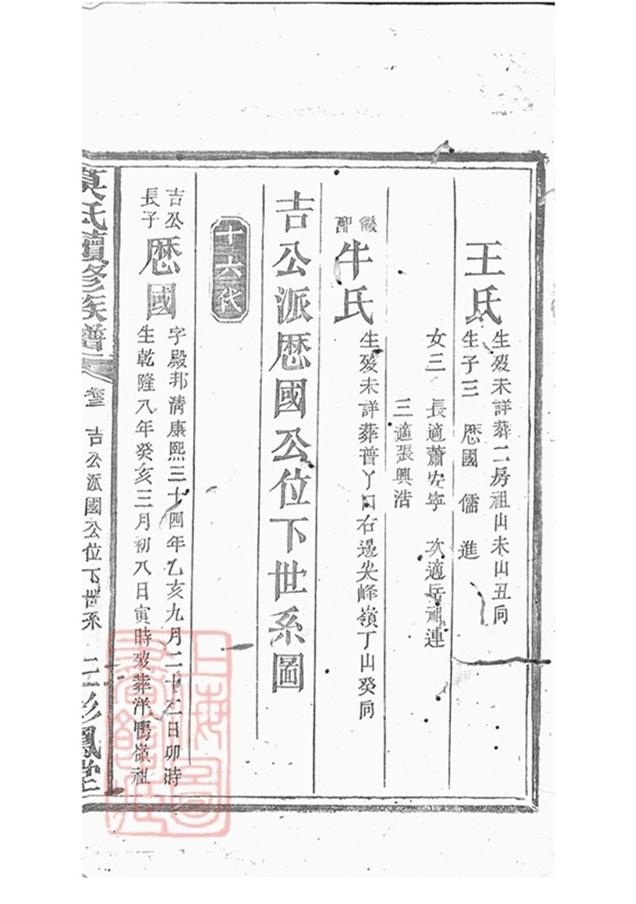 王氏
生歿未詳葬二房祖山未山丑向
生子三 厯國 儒 進
女三 長適蕭安寧 次適岳 連
三適張興浩
繼配 牛氏
生歿未詳葬普丫口右邊尖峰嶺丁山癸向
吉公派厯國公位下世系圖
十六代
吉公長子 厯國
字殿邦清康熙三十四年乙亥九月二十二日卯時
生乾隆八年癸亥三月初八日寅時歿葬洋鴨嶺祖
莫氏續修族譜 卷三 吉公派國公位下世系 彩鳳堂
上海圖書館